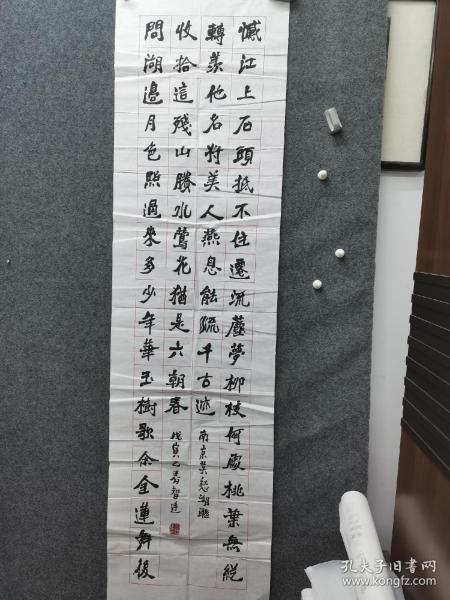 憾江上石頭抵不住遷流塵夢柳枝何處桃葉無縱
轉羨他名將美人燕息能流千古迹
南京莫愁湖聯
問湖邊月色照過來多少年華玉樹歌余金蓮舞後
收拾這殘山賸水鶯花猶是六朝春
戊寅 春智
孔夫子旧书网
www.kongfz.com